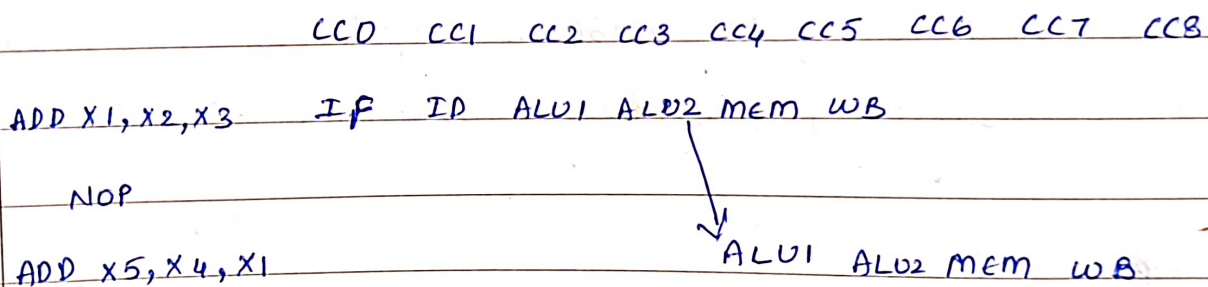 CC0 CC1 CC2 CC3 CC4 CC5 CC6 CC7 CC8
ADD X1, X2, X3 IF ID ALU1 ALU2 MEM WB
NOP
ADD X5, X4, X1 ALU1 ALU2 MEM WB